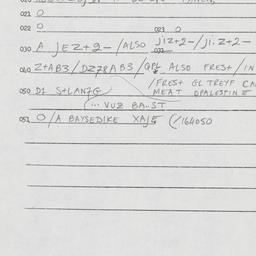 021 O
022 O
023 O
030 A JEZ+2-/ALSO JIZ+2-/JI.Z+2-
040 Z+AB3/DZ78AB3/QPL ALSO FRES+/IN
/FRES+ GL TREYF CA
050 D1 S+LAN7G MEAT OPALESTINE
(... VUZ BA..ST
O/A BAYSEDIKE XAJE (/164050